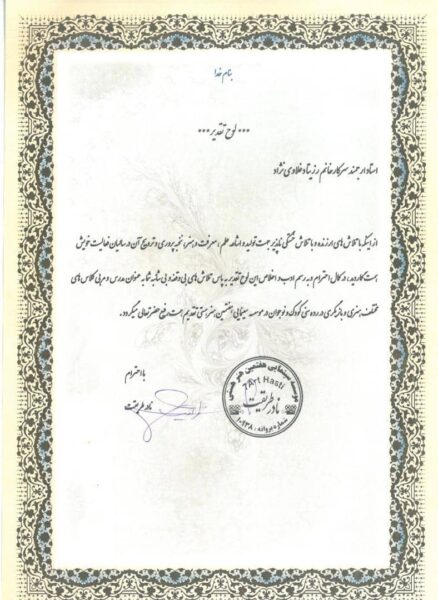 بنام خدا
*** لوح تقدیر ***
استاد ارجمند سرکار خانم رزیتا دغلاوی نژاد
از اینکه با تلاش های ارزنده و با تلاش خستگی ناپذیر جهت تولید و اشاعه علم ، معرفت و هنر، نخبه پروری و ترویج آن در سالیان فعالیت خویش
همت گمارده، در کمال احترام و به رسم ادب و اخلاص این لوح تقدیر به پاس تلاش های بی وقفه و بی شائبه شما به عنوان مدرس و مربی کلاس های
مختلف هنری و بازیگری در رده سنی کودک و نوجوان در موسسه سینمایی هفتمین هنر هستی تقدیم همت رفیع حضرتعالی میگردد.
با احترام
نادر طریقت
موسسه سینمایی هفتمین هنر هستی
7Art Hasti
نادر طریقت
شماره پروانه : ۱۰۹۳۸